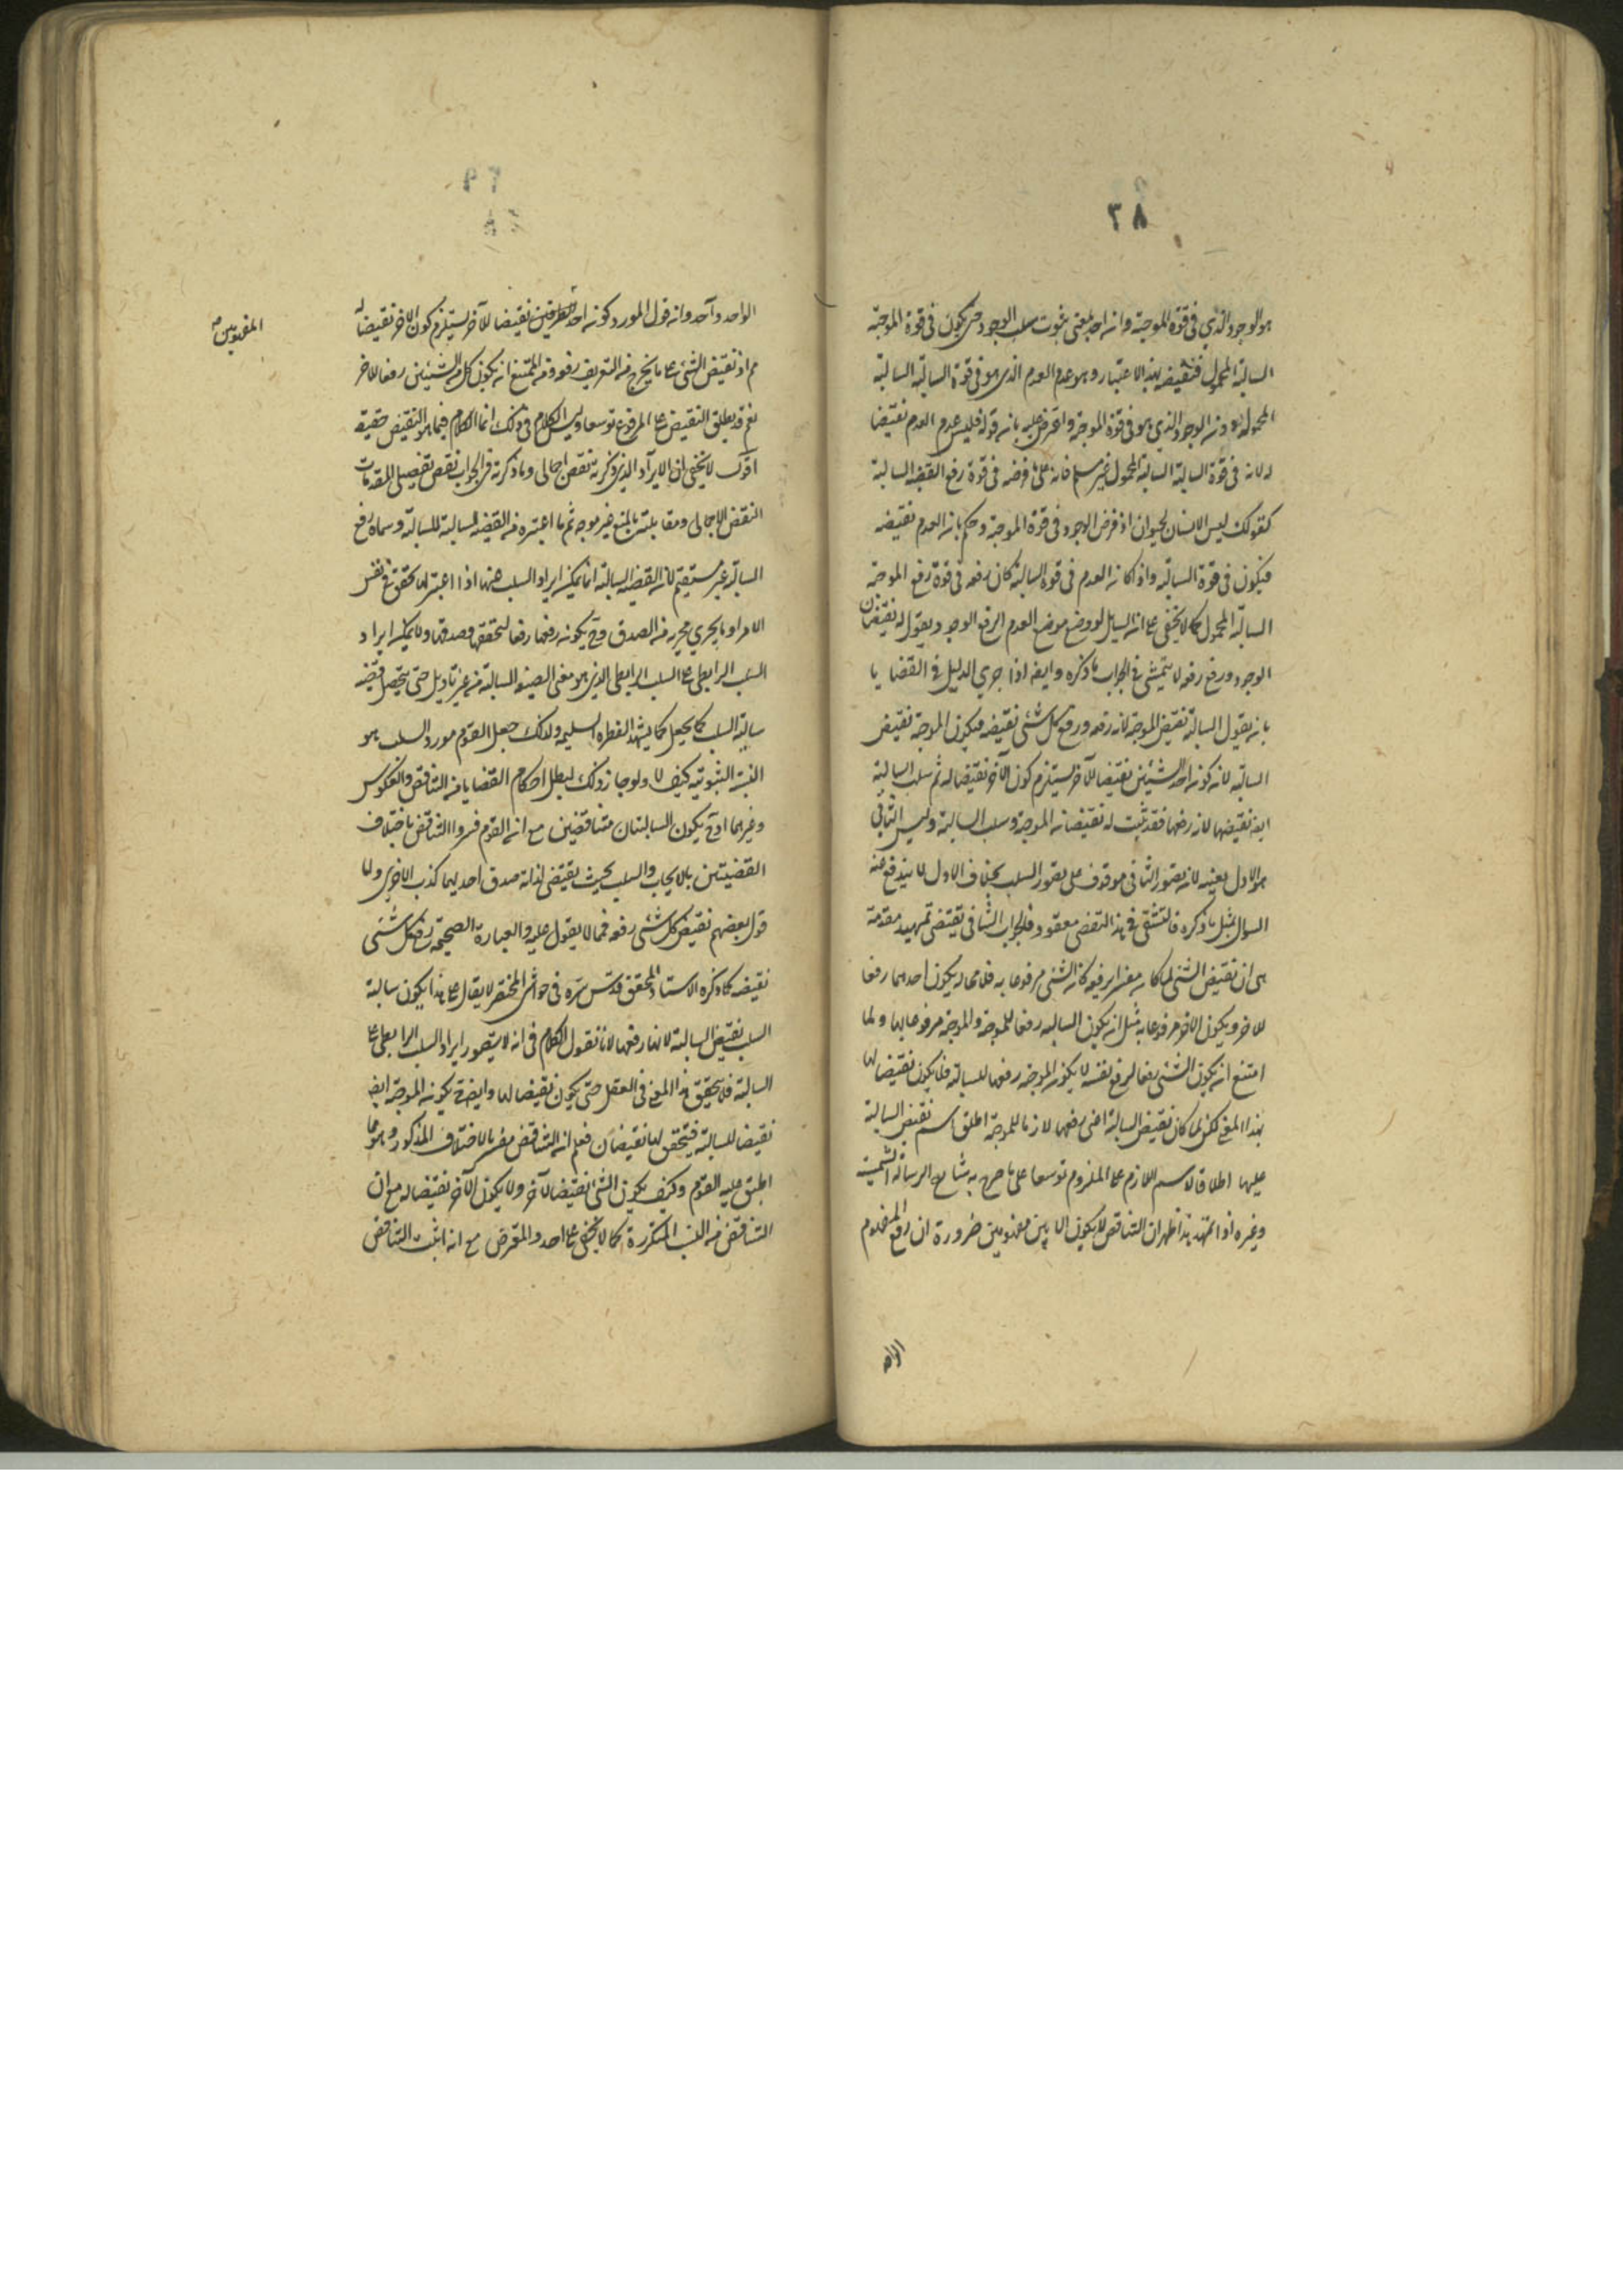 ٣٨
هو الوجود الذي في قوة الموجبة وان احد بمعنى ثبوت سلب الوجود حتى يكون في قوة الموجبة
السالبة المحمول فنقيضه بهذا الاعتبار وهو عدم العدم الذي هو في قوة السالبة السالبة
المحمول لا دون الوجود الذي هو في قوة الموجبة واعترض عليه بان قوله فليس عدم العدم نقيضا
له لانه في قوة السالبة السالبة المحمول غير مسلم فانه على ما فرضه في قوة رفع القضية السالبة
كقولك ليس الانسان بحيوان اذ فرض الوجود في قوة الموجبة وحكم بان العدم نقيضه
فيكون في قوة السالبة واذا كان العدم في قوة السالبة كان رفعه في قوة رفع الموجبة
السالبة المحمول كما لا يخفى على ان السائل لو وضع موضع العدم الرفع الوجود ويقول له نقيضان
الوجود ورفع رفعه لا يتمشى في الجواب ما ذكره وايضا اذا جرى الدليل في القضايا
بان يقول السالبة نقيض الموجبة لانه رفعه ورفع كل شئ نقيضه فيكون الموجبة نقيض
السالبة لان كون احد الشيئين نقيضا للآخر يستلزم كون الآخر نقيضا له ثم سلب السالبة
ايضا نقيضها لانه رفعها فقد ثبت له نقيضان الموجبة وسلب السالبة وليس الثاني
هو الاول بعينه لان تصور الثاني موقوف على تصور السلب بخلاف الاول لا يندفع عنه
السؤال بمثل ما ذكره فالتشقي في هذا النقض معقود فالجواب الشافي يقتضي تمهيد مقدمة
هي ان نقيض الشئ لما كان مفسرا برفعه كان الشئ مرفوعا به فلا محالة يكون احدهما رفعا
للآخر ويكون الآخر مرفوعا به مثل ان يكون السالبة رفعا للموجبة والموجبة مرفوعا لها ولما
امتنع ان يكون الشئ رفعا لرفع نفسه لا يكون الموجبة رفعا للسالبة فلا يكون نقيضا لها
بهذا المعنى لكن لما كان نقيض السالبة اعني رفعها لازما للموجبة اطلق اسم نقيض السالبة
عليها اطلاقا لاسم اللازم على الملزوم توسعا على ما صرح به شارح الرسالة الشمسية
وغيره اذا تمهد هذا ظهر ان التناقض لا يكون الا بين مفهومين ضرورة ان رفع المفهوم
الواحد
الواحد واحد وان قول المورد كون احد الطرفين نقيضا للآخر يستلزم كون الآخر نقيضا له
مم اذ نقيض الشئ على ما يخرج من التعريف رفعه ومن الممتنع ان يكون كل من الشيئين رفعا للآخر
نعم قد يطلق النقيض على المرفوع توسعا وليس الكلام في ذلك انما الكلام فيما هو النقيض حقيقة
اقول لا يخفى ان الايراد الذي ذكرته نقض اجمالي وما ذكرته في الجواب نقض تفصيلي للمقدمات
النقض الاجمالي ومقابلته بالمنع غير موجه ثم ما اعتبره من القضية السالبة للسالبة وسماه رفع
السالبة غير مستقيم لان القضية السالبة انما يمكن ايراد السلب عنها اذا اعتبر لها تحقق في نفس
الامر او ما يجري مجراه من الصدق وح يكون رفعها رفعا لتحققها وصدقها ولا يمكن ايراد
السلب الرابطي على السلب الرابطي الذي هو معنى القضية السالبة من غير تأويل حتى يتحصل قضية
سالبة السلب كما تحيل كما يشهد الفطرة السليمة ولذلك جعل القوم مورد السلب هو
النسبة الثبوتية كيف لا ولو جاز ذلك لبطل احكام القضايا من التناقض والعكوس
وغيرهما اذ ح يكون السالبتان متناقضتين مع ان القوم فسروا التناقض باختلاف
القضيتين بالايجاب والسلب بحيث يقتضي لذاته صدق احديهما كذب الاخرى ولما
قول بعضهم نقيض كل شئ رفعه فمما لا يعول عليه والعبارة الصحيحة رفع كل شئ
نقيضه كما ذكره الاستاد المحقق قدس سره في حواشي المختصر لا يقال على هذا يكون سالبة
السلب نقيض السالبة لانها رفعها لانا نقول الكلام في انه لا يتصور ايراد السلب الرابطي على
السالبة فلا يتحقق هذا المعنى في العقل حتى يكون نقيضا لها وايضا ح يكون الموجبة ايضا
نقيضا للسالبة فيتحقق لها نقيضان فعلم ان التناقض مفسر بالاختلاف المذكور وهو مما
اطبق عليه القوم وكيف يكون الشئ نقيضا لآخر ولا يكون الآخر نقيضا له مع ان
التناقض من النسب المتكررة كما لا يخفى على احد والمعترض مع انه اثبت التناقض
المفهومين